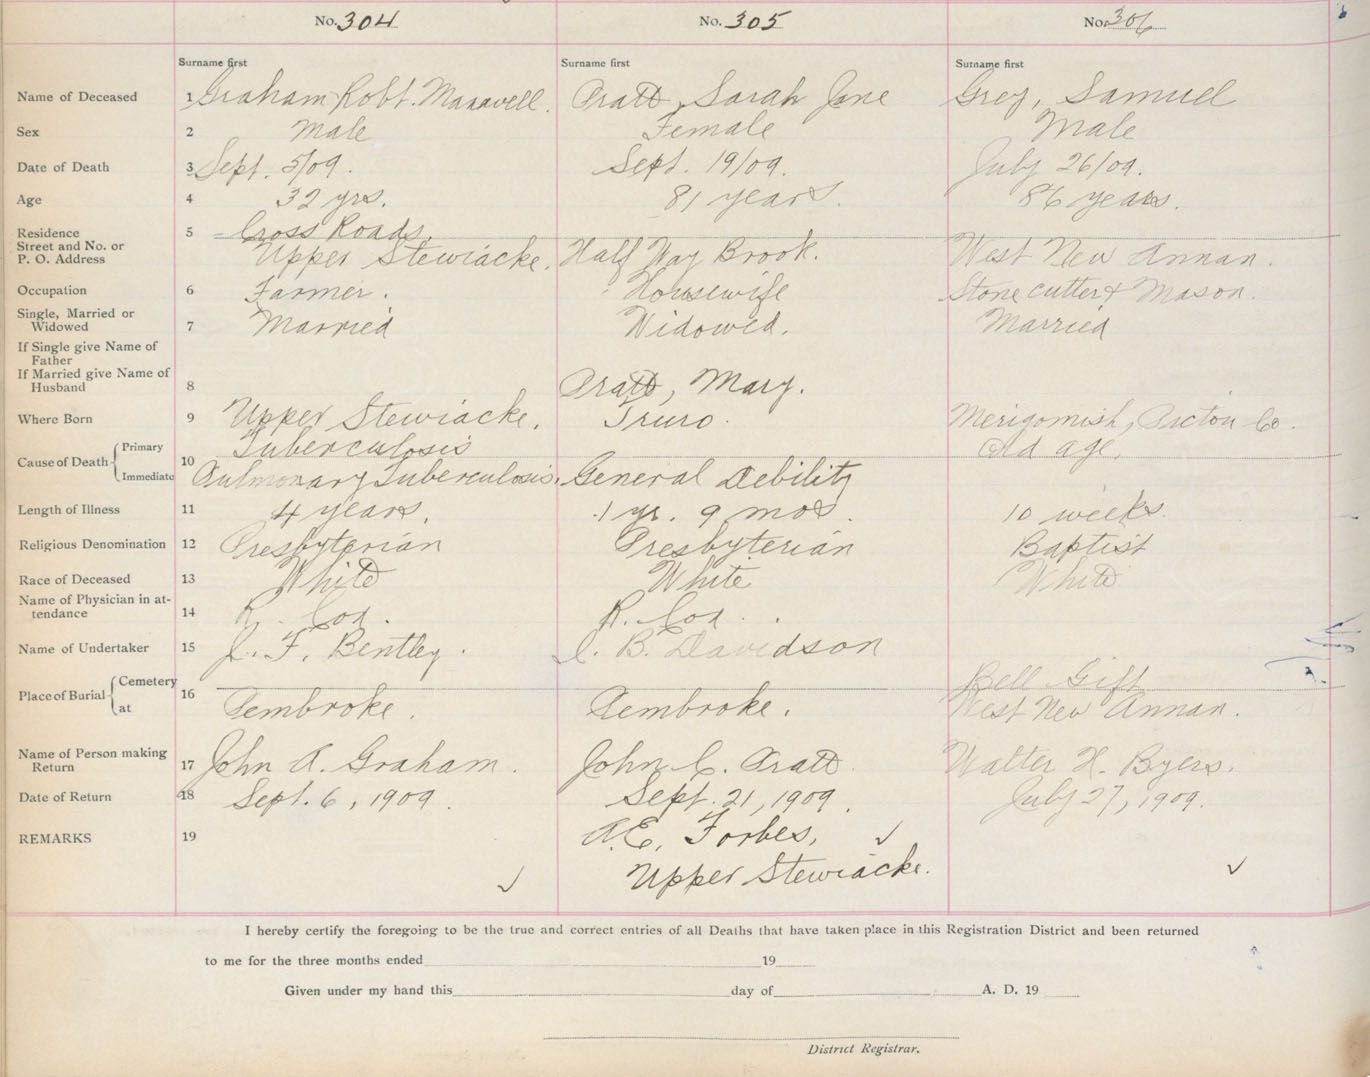 No. 304 No. 305 No. 306
Surname first Surname first Surname first
Name of Deceased 1 Graham Robt. Maxwell. Pratt, Sarah Jane Grey, Samuel
Sex 2 Male Female Male
Date of Death 3 Sept. 5/09. Sept. 19/09. July 26/09.
Age 4 32 yrs. 81 years. 86 years.
Residence 5 Cross Roads,
Street and No. or
P. O. Address Upper Stewiacke. Half Way Brook. West New Annan.
Occupation 6 Farmer. Housewife Stone cutter & Mason.
Single, Married or
Widowed 7 Married Widowed. Married
If Single give Name of
Father
If Married give Name of
Husband 8 Pratt, Mary.
Where Born 9 Upper Stewiacke. Truro. Merigomish, Pictou Co.
Cause of Death Primary 10 Tuberculosis Old age.
Immediate Pulmonary Tuberculosis. General Debility
Length of Illness 11 4 years. 1 yr. 9 mos. 10 weeks.
Religious Denomination 12 Presbyterian Presbyterian Baptist
Race of Deceased 13 White White White
Name of Physician in at-
tendance 14 R. Cox. R. Cox.
Name of Undertaker 15 J. F. Bentley. B. Davidson
Place of Burial Cemetery 16 Bell Gift
at Pembroke. Pembroke. West New Annan.
Name of Person making
Return 17 John A. Graham. John C. Pratt. Walter H. Byers.
Date of Return 18 Sept. 6, 1909. Sept. 21, 1909. July 27, 1909.
REMARKS 19 A.E. Forbes,
Upper Stewiacke.
I hereby certify the foregoing to be the true and correct entries of all Deaths that have taken place in this Registration District and been returned
to me for the three months ended 19
Given under my hand this day of A. D. 19
District Registrar.